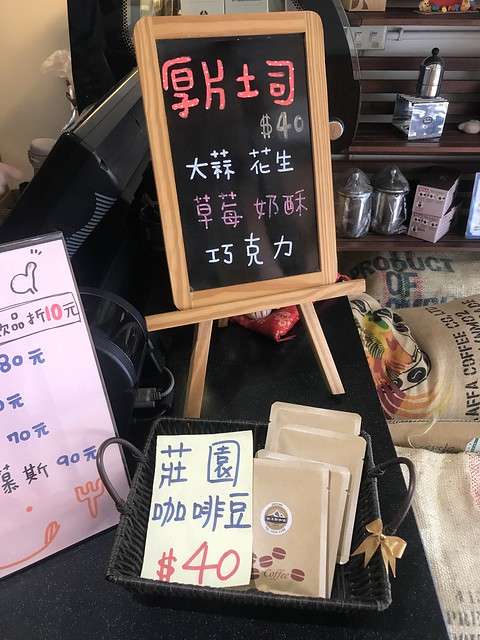 厚片土司
$40
大蒜 花生
草莓 奶酥
巧克力
飲品折10元
80元
元
70元
慕斯 90元
莊園
咖啡豆
$40
Coffee
PRODUCT
OF
COFFEE CO. LT